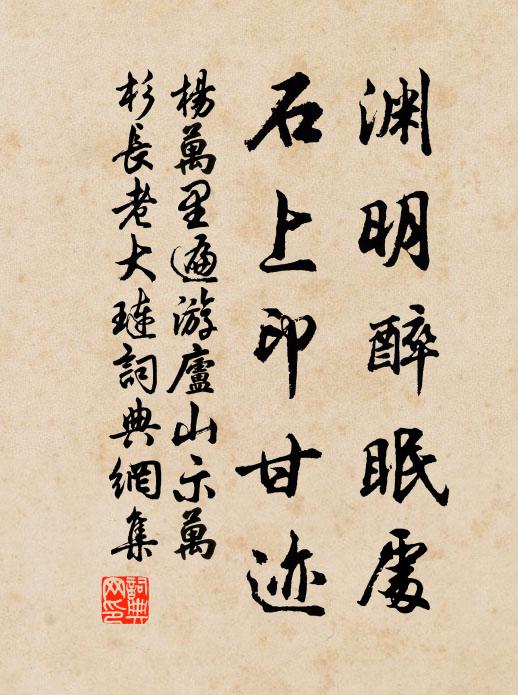 渊明醉眠處
石上印甘迹
楊萬里遍游廬山示萬
杉長老大璉詞典網集
詞典网印